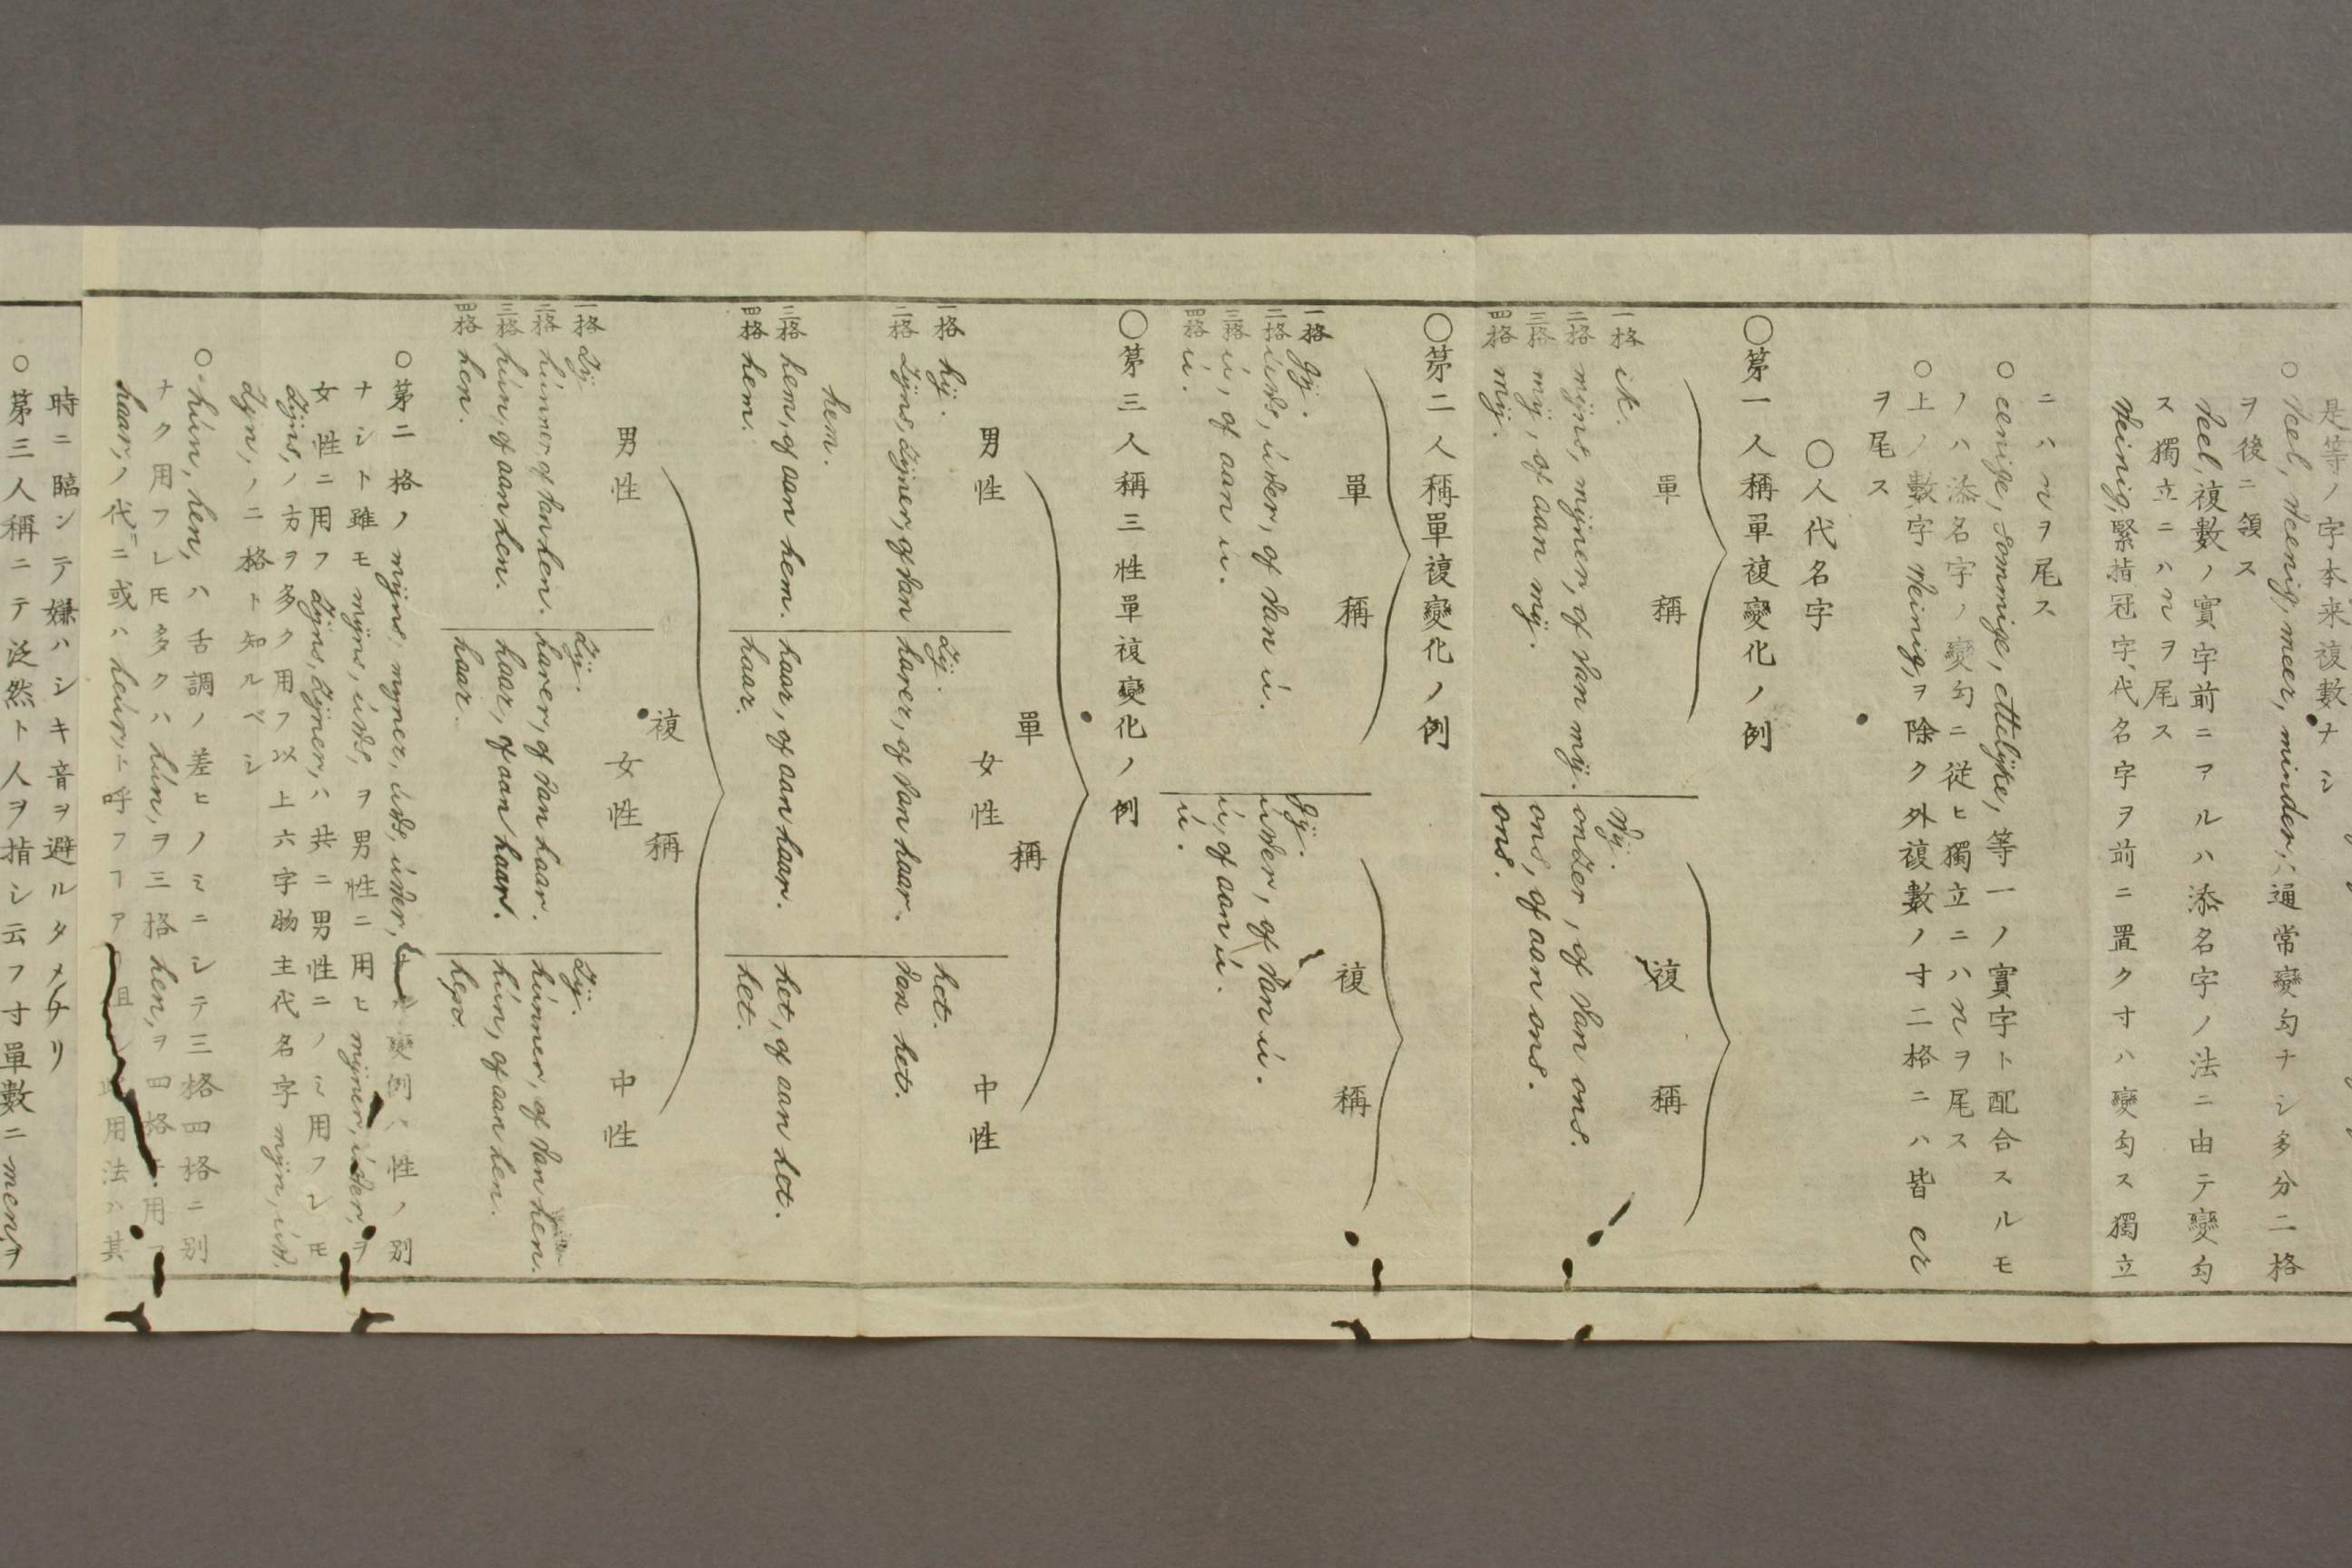 是等ノ字本来複數ナシ
○veel, weenig, meer, minder, ハ通常變勾ナシ多分二格
ヲ後ニ領ス
veel, 複數ノ實字前ニアルハ添名字ノ法ニ由テ變勾
ス獨立ニハnヲ尾ス
weinig, 緊指冠字、代名字ヲ前ニ置ク寸ハ變勾ス獨立
ニハnヲ尾ス
○eenige, sommige, ettelijke, 等一ノ實字ト配合スルモ
ノハ添名字ノ變勾ニ従ヒ獨立ニハnヲ尾ス
○上ノ數字weinig, ヲ除ク外複數ノ寸二格ニハ皆er
ヲ尾ス
○人代名字
○第一人稱單複變化ノ例
單稱
複稱
一格 ik.
二格 mijns, mijner, of van mij.
三格 mij, of aan mij.
四格 mij.
wij.
onzer, of van ons.
ons, of aan ons.
ons.
○第二人稱單複變化ノ例
單稱
複稱
一格 gij.
二格 uws, uwer, of van u.
三格 u, of aan u.
四格 u.
gij.
uwer, of van u.
u, of aan u.
u.
○第三人稱三性單複變化ノ例
單稱
男性
女性
中性
一格 hij.
二格 zijns, zijner, of van
hem.
三格 hem, of aan hem.
四格 hem.
zij.
harer, of van haar.
haar, of aan haar.
haar.
het.
van het.
het, of aan het.
het.
複稱
男性
女性
中性
一格 zij.
二格 hunner of van hen.
三格 hun, of aan hen.
四格 hen.
zij.
harer, of van haar.
haar, of aan haar.
haar.
zij.
hunner, of van hen.
hun, of aan hen.
hen.
○第二格ノmijns, mijner, uws, uwer, 變例ハ性ノ別
ナシト雖モmijns, uws, ヲ男性ニ用ヒmijner, uwer, ヲ
女性ニ用フzijns, zijner, ハ共ニ男性ニノミ用フレモ
zijns, ノ方ヲ多ク用フ以上六字物主代名字mijn, uw.
zijn, ノ二格ト知ルベシ
○hun, hen, ハ舌調ノ差ヒノミニシテ三格四格ニ別
ナク用フレモ多クハhun, ヲ三格hen, ヲ四格ニ用フ
haar, ノ代ニ或ハheur, ト呼フヿア 且 此用法ハ其
時ニ臨ンテ嫌ハシキ音ヲ避ルタメナリ
○第三人稱ニテ泛然ト人ヲ指シ云フ寸單數ニmen, ヲ